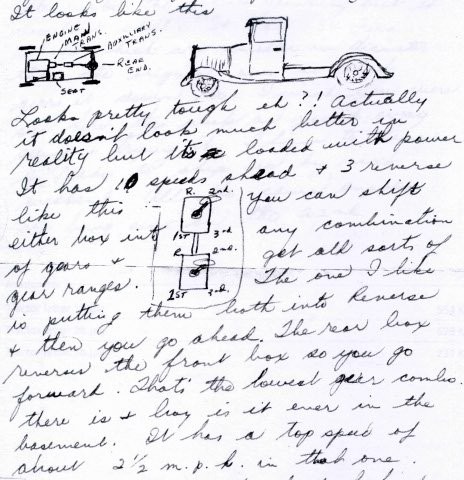 It looks like this
ENGINE
MAIN
TRANS.
AUXILIARY
TRANS.
REAR
END.
SEAT
Looks pretty tough eh?! Actually
it doesn't look much better in
reality but it's loaded with power
It has 10 speeds ahead + 3 reverse
like this R. 2nd. you can shift
1ST 3rd
either box into any combination
R. 2nd.
of gears + get all sorts of
1ST 3rd.
gear ranges. The one I like
is putting them both into Reverse
+ then you go ahead. The rear box
reverses the front box so you go
forward. That's the lowest gear combo.
there is + boy is it ever in the
basement. It has a top speed of
about 2 1/2 m.p.h. in that one.